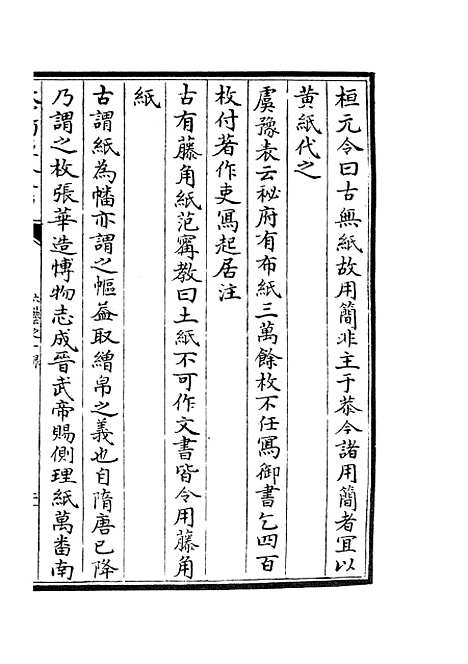 桓元令曰古無紙故用簡非主于恭今諸用簡者宜以
黄紙代之
虞豫表云祕府有布紙三萬餘枚不任冩御書乞四百
枚付著作吏冩起居注
古有藤角紙范寗教曰土紙不可作文書皆令用藤角
紙
古謂紙為幡亦謂之幅葢取繒帛之義也自隋唐已降
乃謂之枚張華造愽物志成晉武帝賜側理紙萬畨南